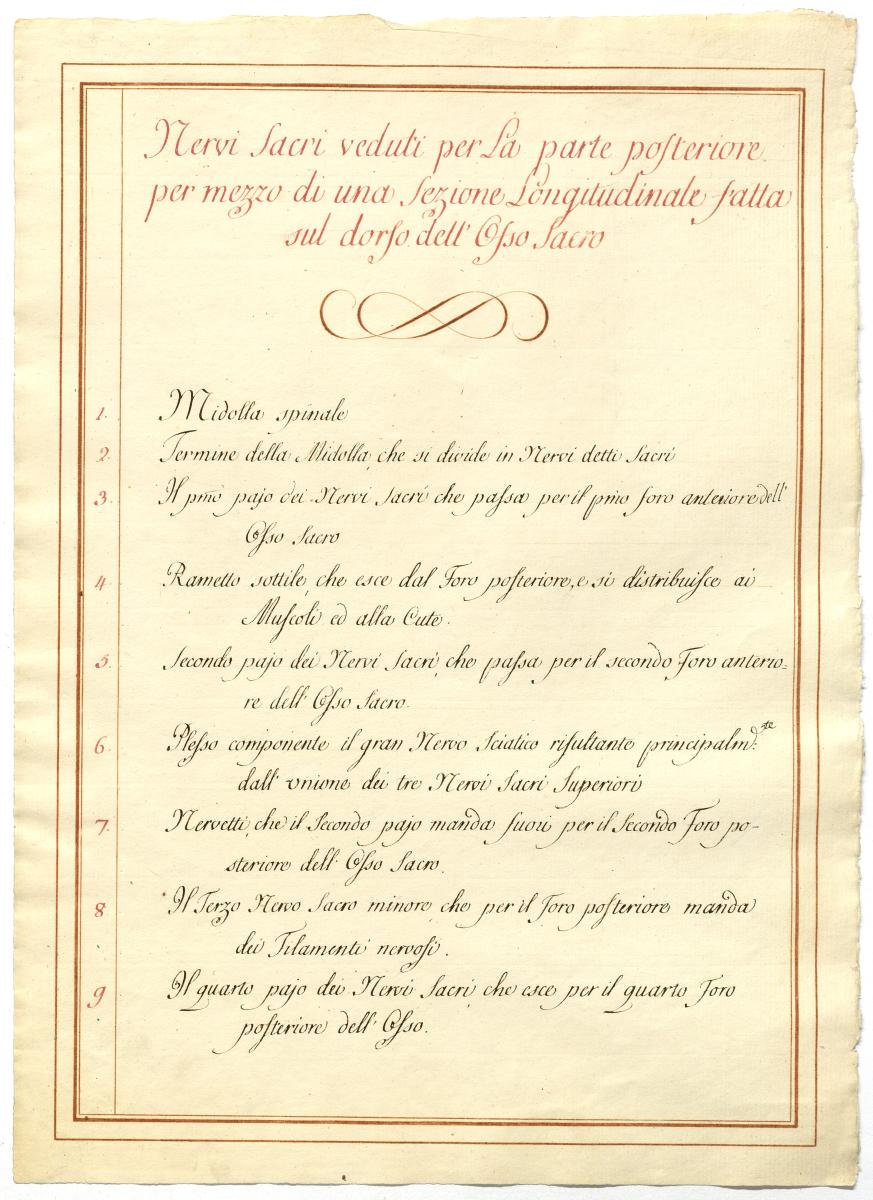 Nervi Sacri veduti per La parte posteriore
per mezzo di una Sezione Longitudinale fatta
sul dorso dell' Osso Sacro
1. Midolla spinale
2. Termine della Midolla, che si divide in Nervi detti Sacri
3. Il pmo pajo dei Nervi Sacri che passa per il pmo foro anteriore dell'
Osso Sacro
4 Rametto sottile, che esce dal Foro posteriore, e si distribuisce ai
Muscoli ed alla Cute.
5. Secondo pajo dei Nervi Sacri, che passa per il secondo Foro anterio-
re dell' Osso Sacro.
6. Plesso componente il gran Nervo Sciatico risultante principalm:te
dall' unione dei tre Nervi Sacri Superiori
7. Nervetti, che il Secondo pajo manda fuori per il Secondo Foro po-
steriore dell' Osso Sacro.
8 Il Terzo Nervo Sacro minore che per il Foro posteriore manda
dei Filamenti nervosi.
9 Il quarto pajo dei Nervi Sacri, che esce per il quarto Foro
posteriore dell' Osso.